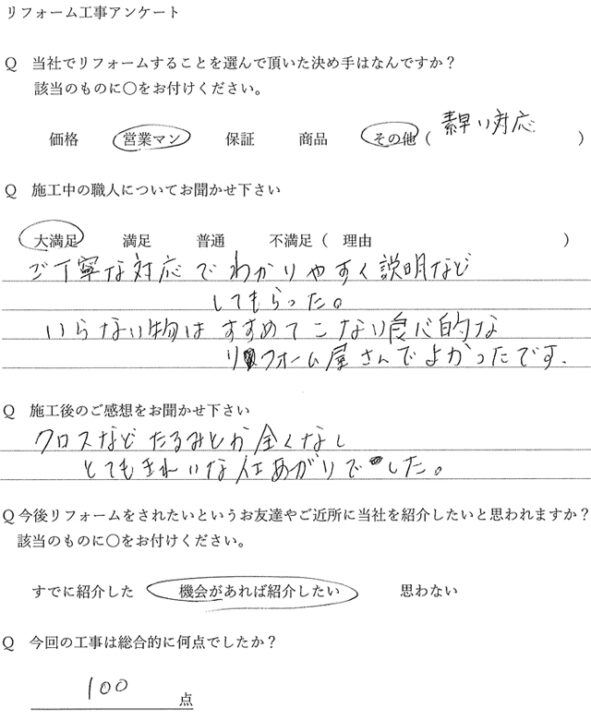 リフォーム工事アンケート
Q 当社でリフォームすることを選んで頂いた決め手はなんですか？
該当のものに〇をお付けください。
価格 営業マン 保証 商品 その他（ 素早い対応 ）
Q 施工中の職人についてお聞かせ下さい
大満足 満足 普通 不満足（ 理由 ）
ご丁寧な対応でわかりやすく説明など
してもらった。
いらない物はすすめてこない良心的な
リフォーム屋さんでよかったです.
Q 施工後のご感想をお聞かせ下さい
クロスなどたるみとか全くなし
とてもきれいな仕あがりでした。
Q 今後リフォームをされたいというお友達やご近所に当社を紹介したいと思われますか？
該当のものに〇をお付けください。
すでに紹介した 機会があれば紹介したい 思わない
Q 今回の工事は総合的に何点でしたか？
100 点